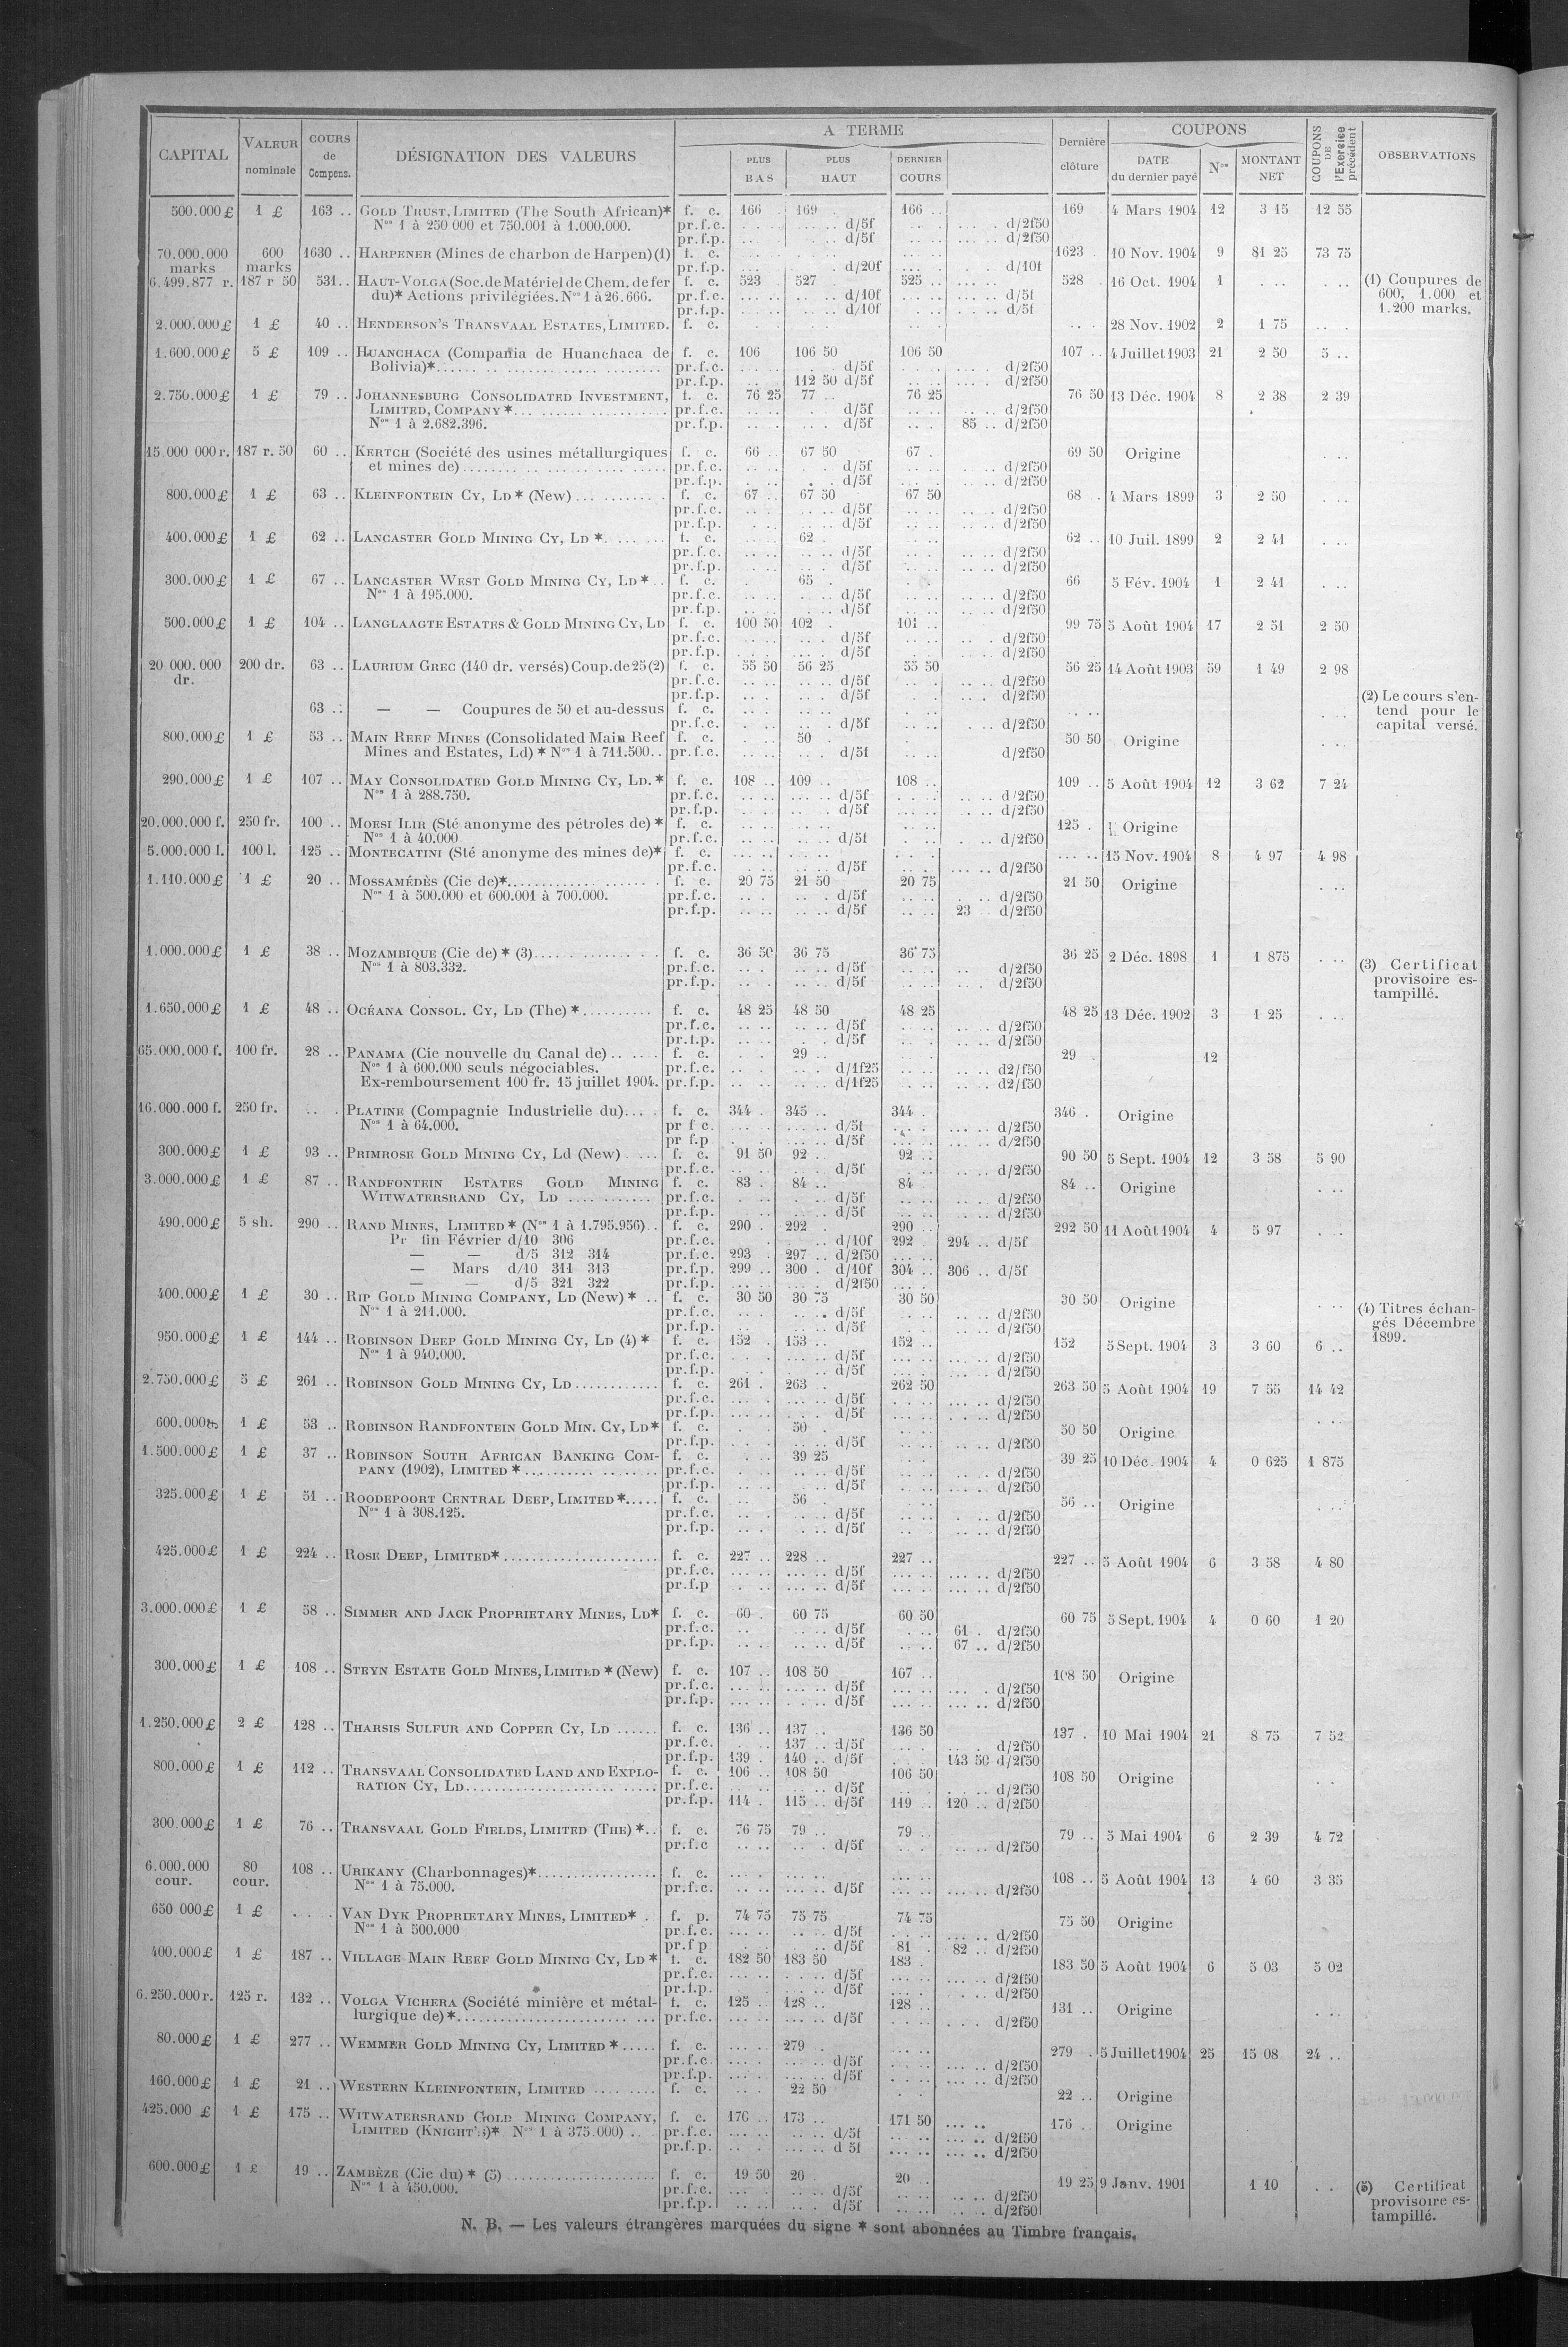 CAPITAL | VALEUR nominale | COURS de Compens. | DÉSIGNATION DES VALEURS | A TERME | PLUS BAS | PLUS HAUT | DERNIER COURS | Dernière clôture | COUPONS | DATE du dernier payé | Nos | MONTANT NET | COUPONS DE l'Exercice précédent | OBSERVATIONS
500.000£ 1 £ 163 .. GOLD TRUST, LIMITED (The South African)* f. c. 166 . 169 . 166 .. 169 4 Mars 1904 12 3 15 12 55
Nos 1 à 250 000 et 750.001 à 1.000.000. pr.f.c. d/5f d/2f50
pr.f.p. d/5f d/2f50
70.000.000 600 1630 .. HARPENER (Mines de charbon de Harpen)(1) f. c. 1623 . 10 Nov. 1904 9 81 25 73 75
marks marks pr.f.p. d/20f d/10f
6.499.877 r. 187 r 50 531.. HAUT-VOLGA (Soc. de Matériel de Chem. de fer f. c. 523 527 525 .. 528 . 16 Oct. 1904 1 (1) Coupures de
du)* Actions privilégiées. Nos 1 à 26.666. pr.f.c. d/10f d/5f 600, 1.000 et
pr.f.p. d/10f d/5f 1.200 marks.
2.000.000£ 1 £ 40 .. HENDERSON'S TRANSVAAL ESTATES, LIMITED. f. c. 28 Nov. 1902 2 1 75
1.600.000£ 5 £ 109 .. HUANCHACA (Compañia de Huanchaca de f. c. 106 106 50 106 50 107 .. 4 Juillet 1903 21 2 50 5 ..
Bolivia)* pr.f.c. d/5f d/2f50
pr.f.p. 112 50 d/5f d/2f50
2.750.000£ 1 £ 79 .. JOHANNESBURG CONSOLIDATED INVESTMENT, f. c. 76 25 77 .. 76 25 76 50 13 Déc. 1904 8 2 38 2 39
LIMITED, COMPANY * pr.f.c. d/5f d/2f50
Nos 1 à 2.682.396. pr.f.p. d/5f 85 .. d/2f50
15 000 000 r. 187 r. 50 60 .. KERTCH (Société des usines métallurgiques f. c. 66 .. 67 50 67 . 69 50 Origine
et mines de) pr.f.c. d/5f d/2f50
pr.f.p. d/5f d/2f50
800.000£ 1 £ 63 .. KLEINFONTEIN CY, LD* (New) f. c. 67 .. 67 50 67 50 68 . 4 Mars 1899 3 2 50
pr.f.c. d/5f d/2f50
pr.f.p. d/5f d/2f50
400.000£ 1 £ 62 .. LANCASTER GOLD MINING CY, LD * f. c. 62 . 62 .. 10 Juil. 1899 2 2 41
pr.f.c. d/5f d/2f50
pr.f.p. d/5f d/2f50
300.000£ 1 £ 67 .. LANCASTER WEST GOLD MINING CY, LD* f. c. 65 . 66 5 Fév. 1904 1 2 41
Nos 1 à 195.000. pr.f.c. d/5f d/2f50
pr.f.p. d/5f d/2f50
500.000£ 1 £ 104 .. LANGLAAGTE ESTATES & GOLD MINING CY, LD f. c. 100 50 102 . 101 .. 99 75 5 Août 1904 17 2 51 2 50
pr.f.c. d/5f d/2f50
pr.f.p. d/5f d/2f50
20 000.000 200 dr. 63 .. LAURIUM GREC (140 dr. versés) Coup. de 25 (2) f. c. 55 50 56 25 55 50 56 25 14 Août 1903 59 1 49 2 98
dr. pr.f.c. d/5f d/2f50
pr.f.p. d/5f d/2f50 (2) Le cours s'en-
63 .. — — Coupures de 50 et au-dessus f. c. tend pour le
pr.f.c. d/5f d/2f50 capital versé.
800.000£ 1 £ 53 .. MAIN REEF MINES (Consolidated Main Reef f. c. 50 . 50 50 Origine
Mines and Estates, Ld) * Nos 1 à 711.500.. pr.f.c. d/5f d/2f50
290.000£ 1 £ 107 .. MAY CONSOLIDATED GOLD MINING CY, LD. * f. c. 108 .. 109 .. 108 .. 109 .. 5 Août 1904 12 3 62 7 24
Nos 1 à 288.750. pr.f.c. d/5f d/2f50
pr.f.p. d/5f d/2f50
20.000.000 f. 250 fr. 100 .. MOESI ILIR (Sté anonyme des pétroles de) * f. c. 125 . Origine
Nos 1 à 40.000. pr.f.c. d/5f d/2f50
5.000.000 l. 100 l. 125 .. MONTECATINI (Sté anonyme des mines de)* f. c. 15 Nov. 1904 8 4 97 4 98
pr.f.c. d/5f d/2f50
1.110.000£ 1 £ 20 .. MOSSAMÉDÈS (Cie de)* f. c. 20 75 21 50 20 75 21 50 Origine
Nos 1 à 500.000 et 600.001 à 700.000. pr.f.c. d/5f d/2f50
pr.f.p. d/5f 23 .. d/2f50
1.000.000£ 1 £ 38 .. MOZAMBIQUE (Cie de) * (3) f. c. 36 50 36 75 36 75 36 25 2 Déc. 1898 1 1 875
Nos 1 à 803.332. pr.f.c. d/5f d/2f50 (3) Certificat
pr.f.p. d/5f d/2f50 provisoire es-
tampillé.
1.650.000£ 1 £ 48 .. OCÉANA CONSOL. CY, LD (The) * f. c. 48 25 48 50 48 25 48 25 13 Déc. 1902 3 1 25
pr.f.c. d/5f d/2f50
pr.f.p. d/5f d/2f50
65.000.000 f. 100 fr. 28 .. PANAMA (Cie nouvelle du Canal de) f. c. 29 .. 29 . 12
Nos 1 à 600.000 seuls négociables. pr.f.c. d/1f25 d2/f50
Ex-remboursement 100 fr. 15 juillet 1904. pr.f.p. d/1f25 d2/f50
16.000.000 f. 250 fr. PLATINE (Compagnie Industrielle du) f. c. 344 . 345 .. 344 . 346 . Origine
Nos 1 à 64.000. pr f c. d/5f d/2f50
pr f.p d/5f d/2f50
300.000£ 1 £ 93 .. PRIMROSE GOLD MINING CY, Ld (New) f. c. 91 50 92 .. 92 .. 90 50 5 Sept. 1904 12 3 58 5 90
pr.f.c. d/5f d/2f50
3.000.000£ 1 £ 87 .. RANDFONTEIN ESTATES GOLD MINING f. c. 83 . 84 .. 84 . 84 .. Origine
WITWATERSRAND CY, LD pr.f.c. d/5f d/2f50
pr.f.p. d/5f d/2f50
490.000£ 5 sh. 290 .. RAND MINES, LIMITED* (Nos 1 à 1.795.956) f. c. 290 . 292 . 290 .. 292 50 11 Août 1904 4 5 97
Pr fin Février d/10 306 pr.f.c. d/10f 292 . 294 .. d/5f
— — d/5 312 314 pr.f.c. 293 . 297 .. d/2f50
— Mars d/10 311 313 pr.f.p. 299 .. 300 . d/10f 304 .. 306 .. d/5f
— — d/5 321 322 pr.f.p. d/2f50
400.000£ 1 £ 30 .. RIP GOLD MINING COMPANY, LD (New) * f. c. 30 50 30 75 30 50 30 50 Origine (4) Titres échan-
Nos 1 à 211.000. pr.f.c. d/5f d/2f50 gés Décembre
pr.f.p. d/5f d/2f50 1899.
950.000£ 1 £ 144 .. ROBINSON DEEP GOLD MINING CY, LD (4) * f. c. 152 . 153 .. 152 .. 152 5 Sept. 1904 3 3 60 6 ..
Nos 1 à 940.000. pr.f.c. d/5f d/2f50
pr.f.p. d/5f d/2f50
2.750.000£ 5 £ 261 .. ROBINSON GOLD MINING CY, LD f. c. 261 . 263 . 262 50 263 50 5 Août 1904 19 7 55 14 42
pr.f.c. d/5f d/2f50
pr.f.p. d/5f d/2f50
600.000£ 1 £ 53 .. ROBINSON RANDFONTEIN GOLD MIN. CY, LD* f. c. 50 . 50 50 Origine
pr.f.p. d/5f d/2f50
1.500.000£ 1 £ 37 .. ROBINSON SOUTH AFRICAN BANKING COM- f. c. 39 25 39 25 10 Déc. 1904 4 0 625 1 875
PANY (1902), LIMITED * pr.f.c. d/5f d/2f50
pr.f.p. d/5f d/2f50
325.000£ 1 £ 51 .. ROODEPOORT CENTRAL DEEP, LIMITED* f. c. 56 56 .. Origine
Nos 1 à 308.125. pr.f.c. d/5f d/2f50
pr.f.p. d/5f d/2f50
425.000£ 1 £ 224 .. ROSE DEEP, LIMITED* f. c. 227 .. 228 .. 227 .. 227 .. 5 Août 1904 6 3 58 4 80
pr.f.c. d/5f d/2f50
pr.f.p d/5f d/2f50
3.000.000£ 1 £ 58 .. SIMMER AND JACK PROPRIETARY MINES, LD* f. c. 60 . 60 75 60 50 60 75 5 Sept. 1904 4 0 60 1 20
pr.f.c. d/5f 61 . d/2f50
pr.f.p. d/5f 67 .. d/2f50
300.000£ 1 £ 108 .. STEYN ESTATE GOLD MINES, LIMITED * (New) f. c. 107 .. 108 50 107 .. 108 50 Origine
pr.f.c. d/5f d/2f50
pr.f.p. d/5f d/2f50
1.250.000£ 2 £ 128 .. THARSIS SULFUR AND COPPER CY, LD f. c. 136 .. 137 .. 136 50 137 . 10 Mai 1904 21 8 75 7 52
pr.f.c. 137 .. d/5f d/2f50
pr.f.p. 139 . 140 .. d/5f 143 50 d/2f50
800.000£ 1 £ 112 .. TRANSVAAL CONSOLIDATED LAND AND EXPLO- f. c. 106 .. 108 50 106 50 108 50 Origine
RATION CY, LD pr.f.c. d/5f d/2f50
pr.f.p. 114 . 115 .. d/5f 119 .. 120 .. d/2f50
300.000£ 1 £ 76 .. TRANSVAAL GOLD FIELDS, LIMITED (THE) * f. c. 76 75 79 .. 79 .. 79 .. 5 Mai 1904 6 2 39 4 72
pr.f.c d/5f d/2f50
6.000.000 80 108 .. URIKANY (Charbonnages)* f. c. 108 .. 5 Août 1904 13 4 60 3 35
cour. cour. Nos 1 à 75.000. pr.f.c. d/5f d/2f50
650 000£ 1 £ VAN DYK PROPRIETARY MINES, LIMITED* f. p. 74 75 75 75 74 75 75 50 Origine
Nos 1 à 500.000 pr.f.c. d/5f d/2f50
pr.f p d/5f 81 . 82 .. d/2f50
400.000£ 1 £ 187 .. VILLAGE MAIN REEF GOLD MINING CY, LD * f. c. 182 50 183 50 183 . 183 50 5 Août 1904 6 5 03 5 02
pr.f.c. d/5f d/2f50
pr.f.p. d/5f d/2f50
6.250.000 r. 125 r. 132 .. VOLGA VICHERA (Société minière et métal- f. c. 125 .. 128 .. 128 .. 131 .. Origine
lurgique de)* pr.f.c. d/5f d/2f50
80.000£ 1 £ 277 .. WEMMER GOLD MINING CY, LIMITED * f. c. 279 . 279 . 5 Juillet 1904 25 15 08 24 ..
pr.f.c. d/5f d/2f50
pr.f.p. d/5f d/2f50
160.000£ 1 £ 21 .. WESTERN KLEINFONTEIN, LIMITED f. c. 22 50 22 .. Origine
425.000 £ 1 £ 175 .. WITWATERSRAND GOLD MINING COMPANY, f. c. 173 .. 171 50 176 . Origine
LIMITED (KNIGHT'S)* Nos 1 à 375.000) pr.f.c. d/5f d/2f50
pr.f.p. d 5f d/2f50
600.000£ 1 £ 19 .. ZAMBÈZE (Cie du) * (5) f. c. 19 50 20 20 .. 19 25 9 Janv. 1901 1 10 (5) Certificat
Nos 1 à 450.000. pr.f.c. d/5f d/2f50 provisoire es-
pr.f.p. d/5f d/2f50 tampillé.
N. B. — Les valeurs étrangères marquées du signe * sont abonnées au Timbre français.